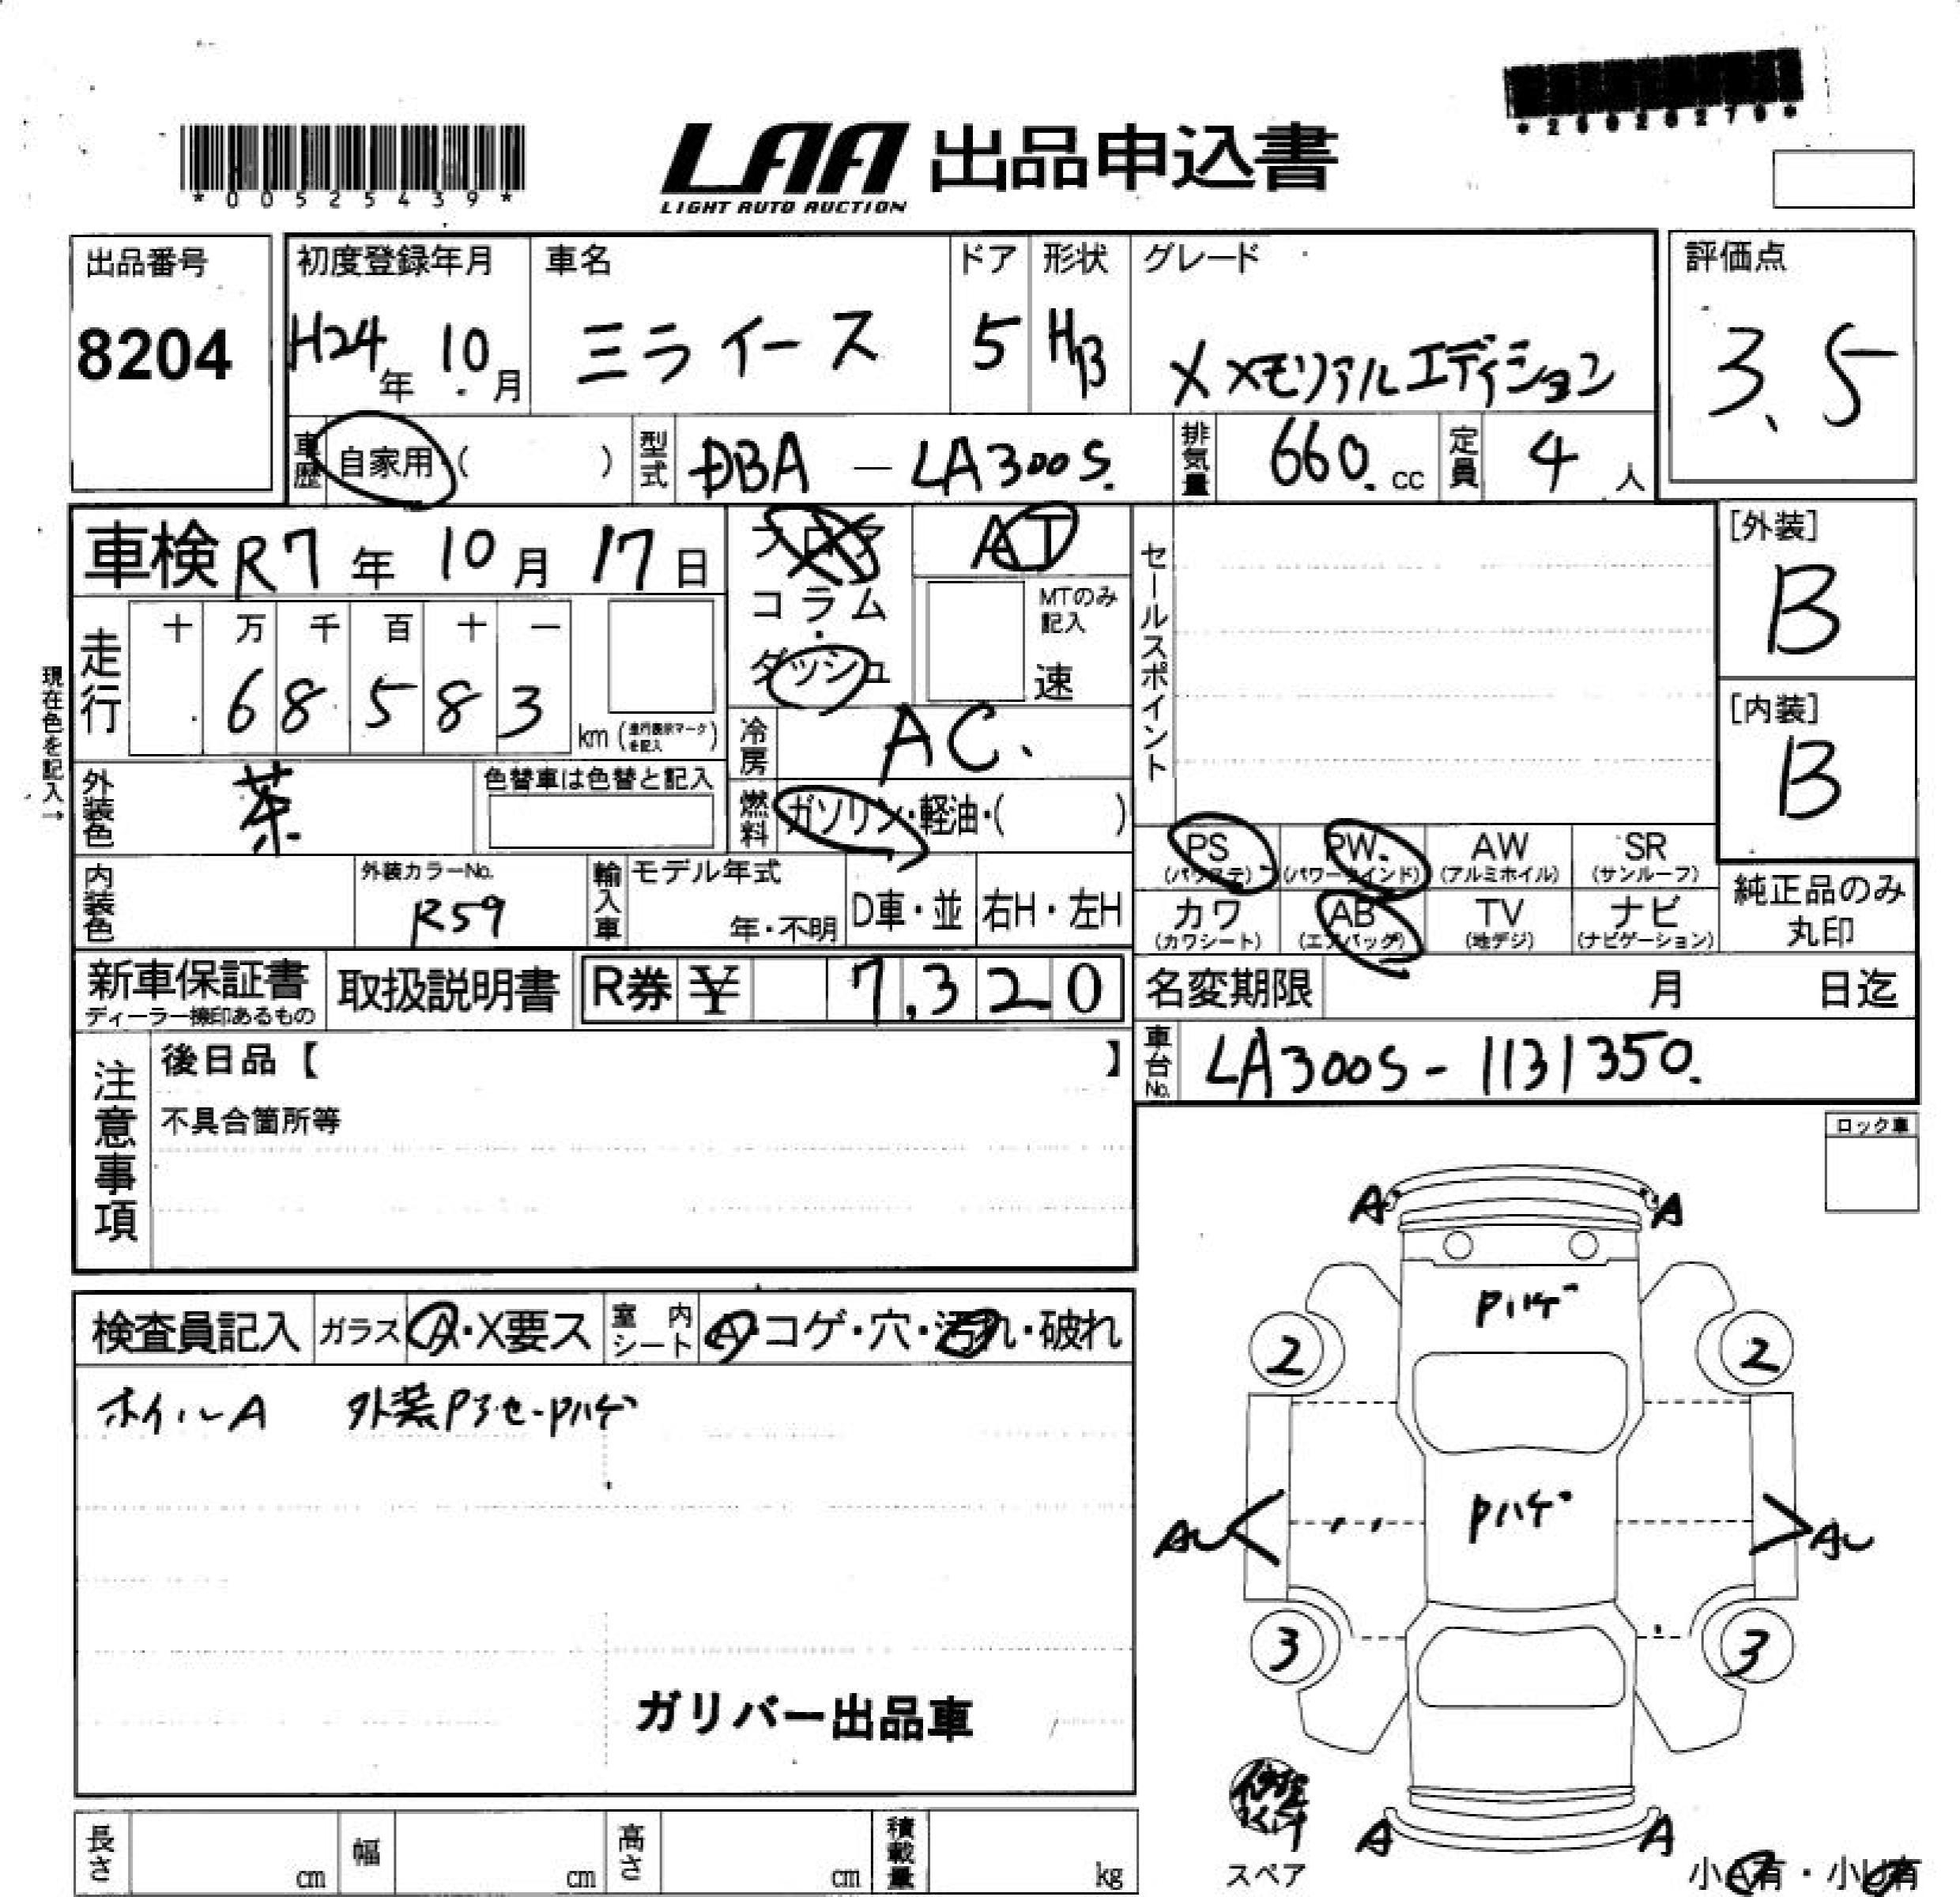 *25026270*
*00525439*
LAA 出品申込書
LIGHT AUTO AUCTION
出品番号
8204
初度登録年月
H24年 10月
車名
ミライース
ドア
5
形状
HB
グレード
X メモリアルエディション
評価点
3.5
車歴 自家用 ( )
型式 DBA - LA300S.
排気量 660. cc
定員 4 人
車検 R7年 10月 17日
フロア
コラム
ダッシュ
AT
MTのみ記入
速
セールスポイント
[外装]
B
[内装]
B
現在色を記入→
走行
十 万 千 百 十 一
6 8 5 8 3
km (走行表示マークを記入)
冷房 AC.
外装色 茶
色替車は色替と記入
燃料 ガソリン・軽油・( )
内装色
外装カラーNo.
R59
輸入車
モデル年式
年・不明
D車・並
右H・左H
PS (パワステ)
PW (パワーウインド)
AW (アルミホイル)
SR (サンルーフ)
カワ (カワシート)
AB (エアバッグ)
TV (地デジ)
ナビ (ナビゲーション)
純正品のみ丸印
新車保証書
ディーラー捺印あるもの
取扱説明書
R券 ¥ 7,320
名変期限 月 日迄
車台No. LA300S - 1131350.
注意事項
後日品【 】
不具合箇所等
ロック車
検査員記入
ガラス A・X要ス
室内シート A・コゲ・穴・汚れ・破れ
ホイルA 外装Pヤセ-Pハゲ
ガリバー出品車
A A
Pハゲ
2 2
Pハゲ
AU AU
3 3
A A
修理キット
スペア
小A有・小U有
長さ cm
幅 cm
高さ cm
積載量 kg